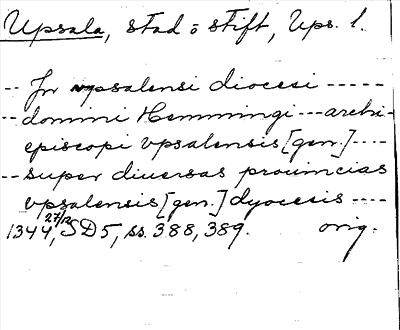 Upsala, stad o stift, Ups. l.
-- In upsalensi diocesi -----
-- domini Hemmingi --- archi-
episcopi vpsalensis [gen.] ----
-- super diuersas prouincias
vpsalensis [gen.] dyocesis ----
1344 27/12, SD 5, ss. 388, 389. orig.